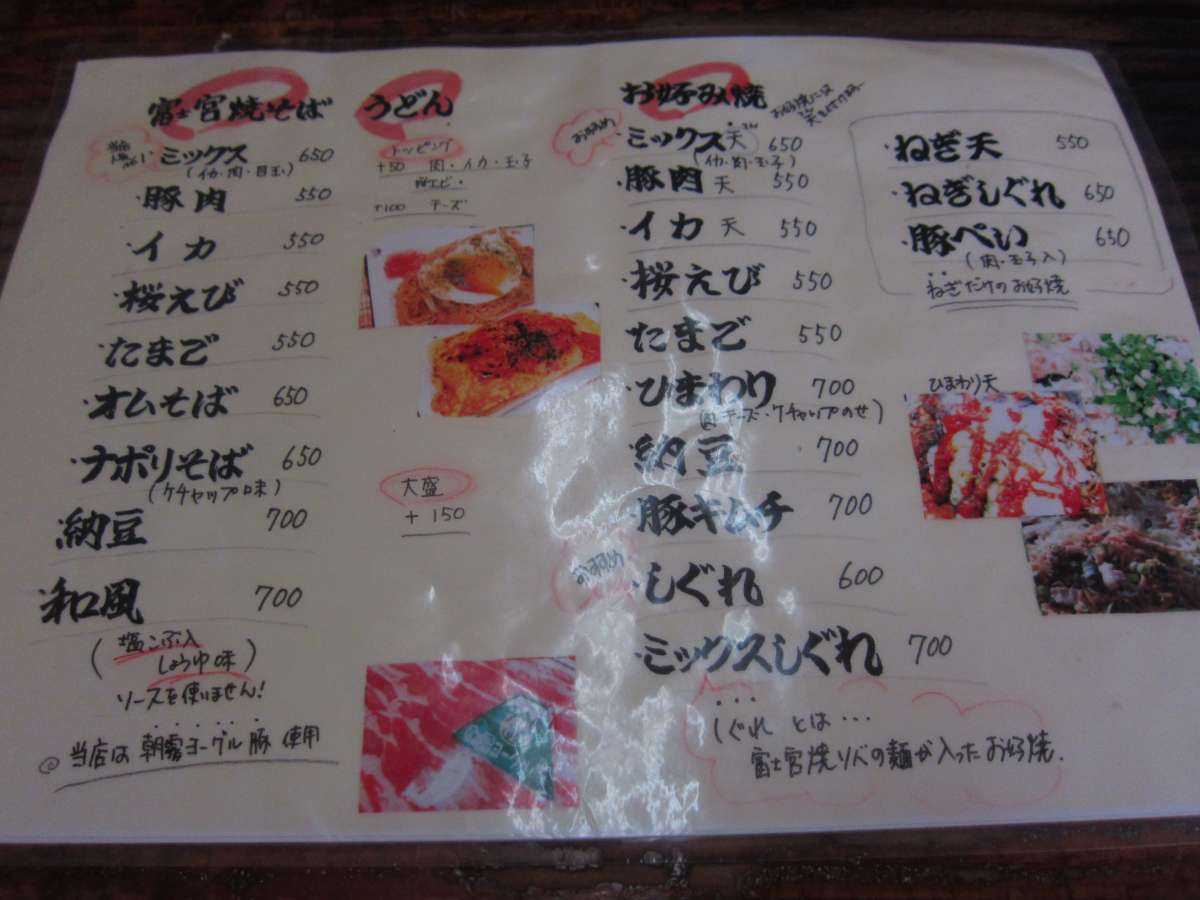 富士宮焼そば
当店
人気No.1!
・ミックス 650
(イカ・肉・目玉)
・豚肉 550
・イカ 550
・桜えび 550
・たまご 550
・オムそば 650
・ナポリそば 650
(ケチャップ味)
・納豆 700
・和風 700
(塩こぶ入
しょうゆ味)
ソースを使いません!
◎当店は 朝霧ヨーグル豚 使用
うどん
トッピング
+50 肉・イカ・玉子
桜エビ・
+100 チーズ
大盛
+150
お好み焼
お好焼には
おすすめ
・ミックス天 650
(イカ・肉・玉子)
・豚肉天 550
・イカ天 550
・桜えび 550
・たまご 550
・ひまわり 700
(肉・チーズ・ケチャップのせ)
・納豆 700
・豚キムチ 700
おすすめ
・しぐれ 600
・ミックスしぐれ 700
しぐれ とは・・・
富士宮焼そばの麺が入ったお好焼.
・ねぎ天 550
・ねぎしぐれ 650
・豚ぺい 650
(肉・玉子入)
ねぎだけのお好焼
ひまわり天